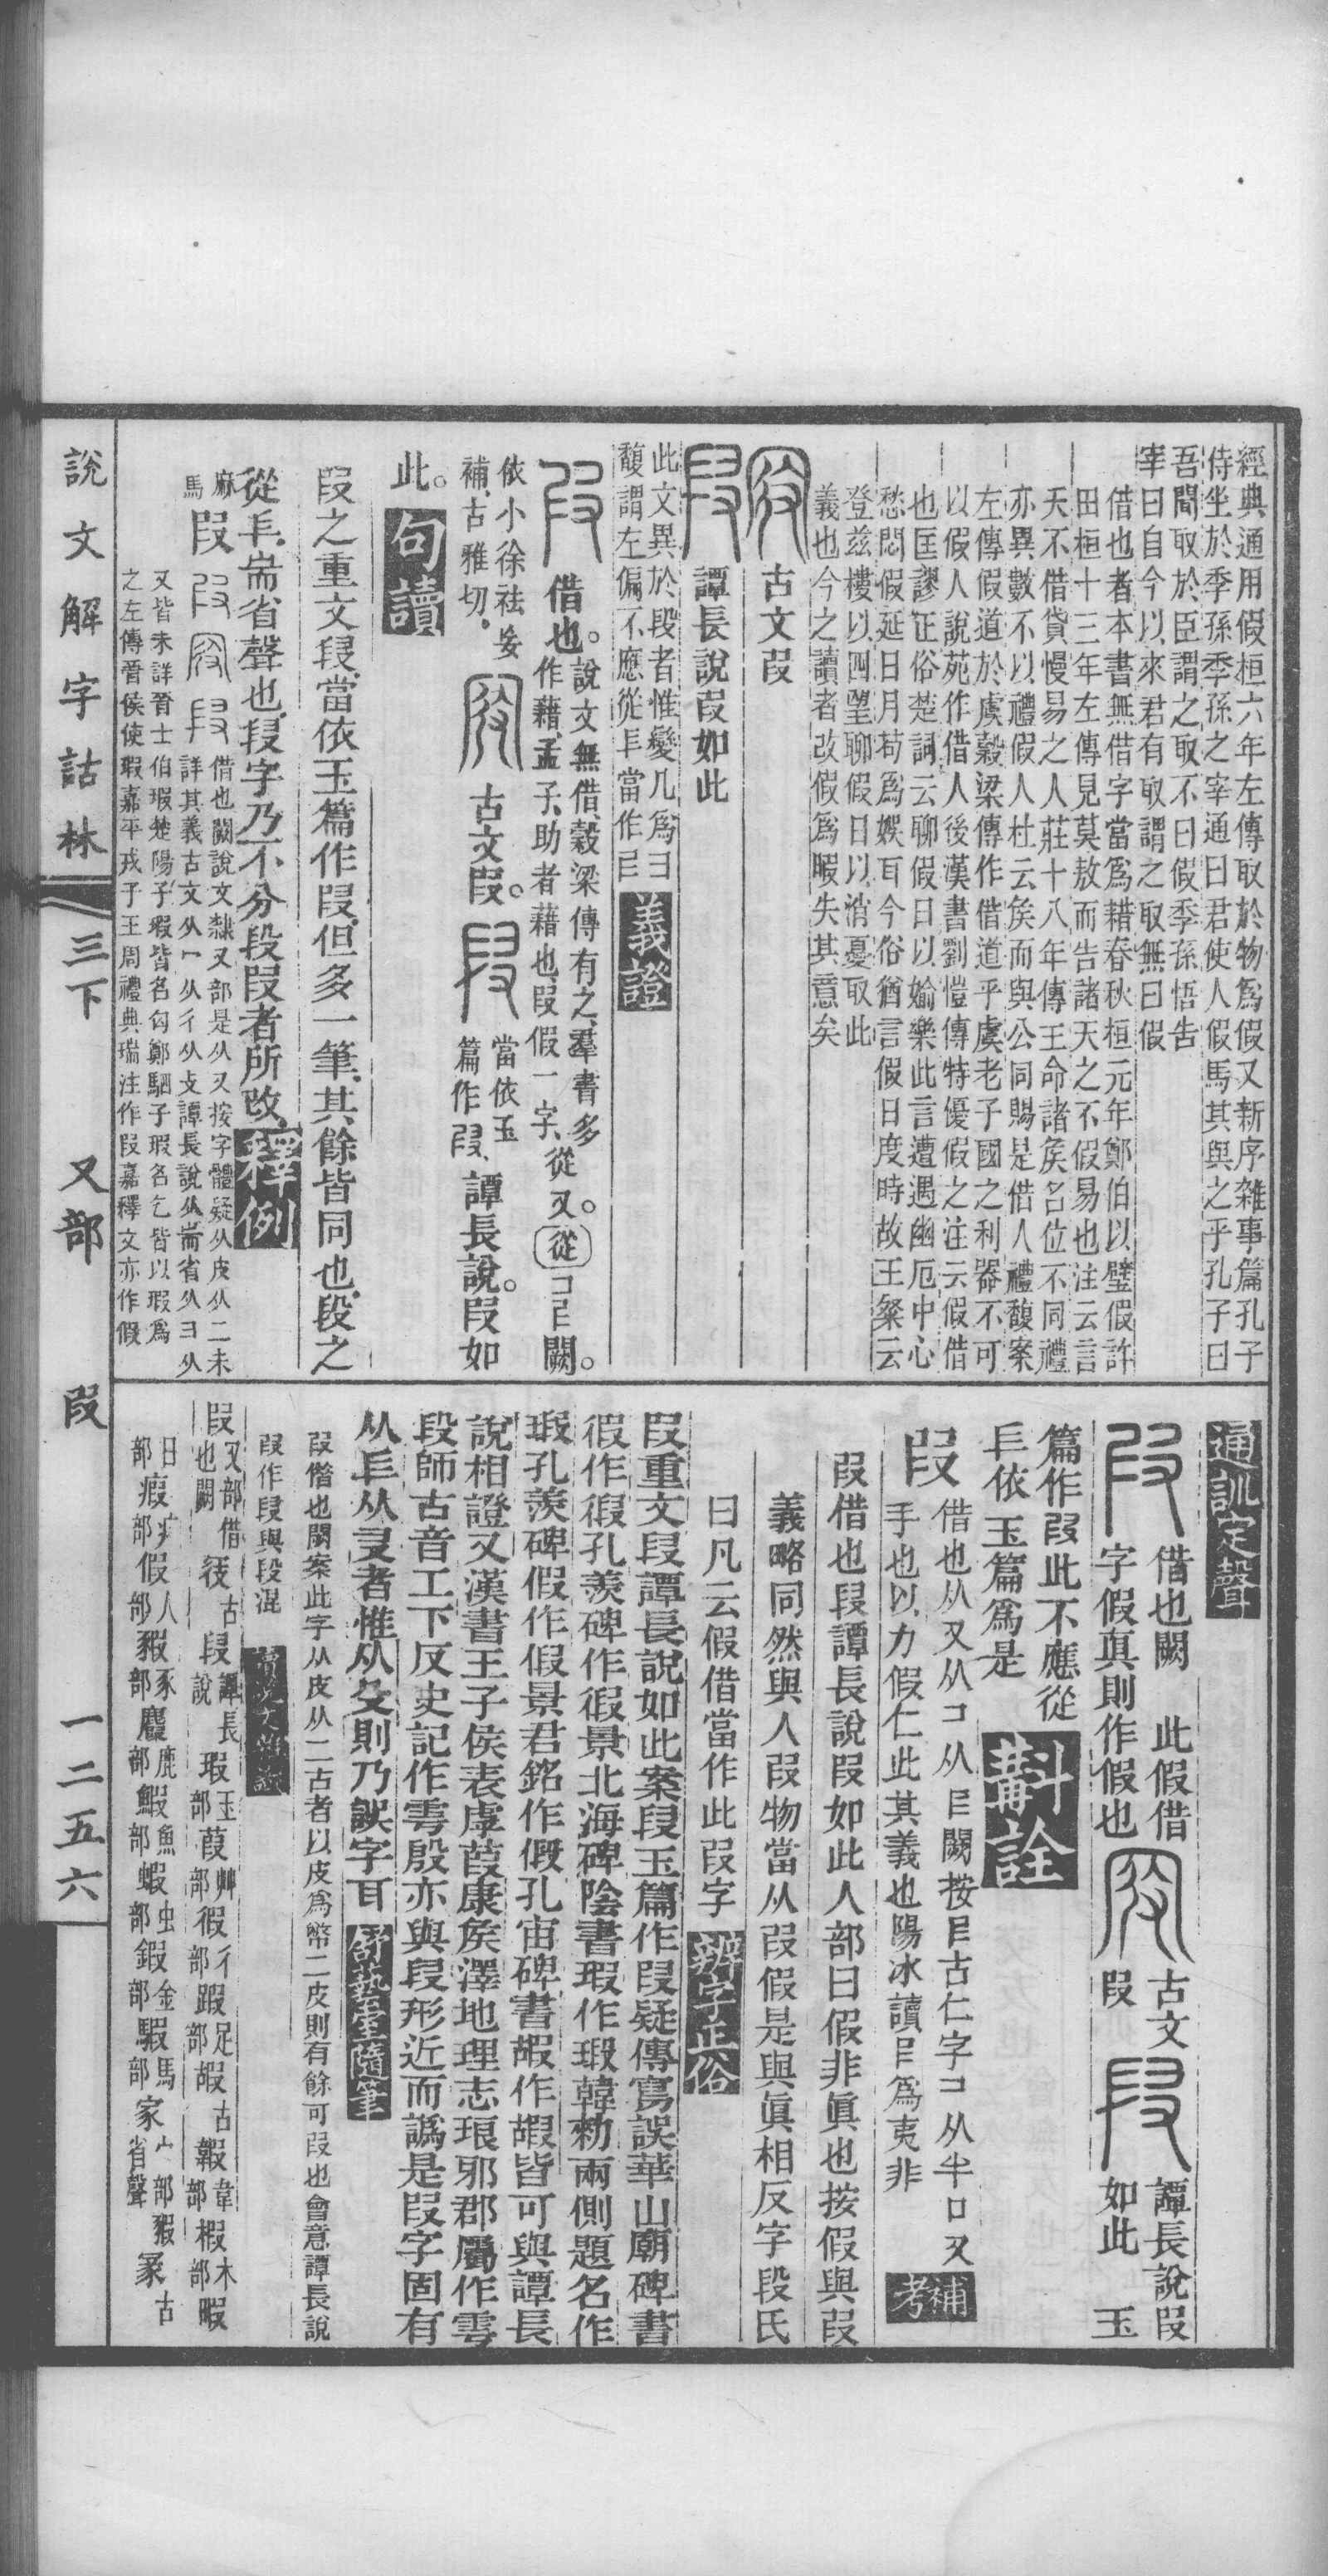 經典通用假桓六年左傳取於物爲假又新序雜事篇孔子
侍坐於季孫季孫之宰通曰君使人假馬其與之乎孔子曰
吾聞取於臣謂之取不曰假季孫悟告
宰曰自今以來君有取謂之取無曰假
借也者本書無借字當爲耤春秋桓元年鄭伯以璧假許
田桓十三年左傳見莫敖而告諸天之不假易也注云言
天不借貸慢易之人莊十八年傳王命諸侯名位不同禮
亦異數不以禮假人杜云矦而與公同賜是借人禮馥案
左傳假道於虞穀梁傳作借道乎虞老子國之利器不可
以假人說苑作借人後漢書劉愷傳特優假之注云假借
也匡謬正俗楚詞云聊假日以媮樂此言遭遇幽厄中心
愁悶假延日月苟爲娛耳今俗猶言假日度時故王粲云
登茲樓以四望聊假日以消憂取此
義也今之讀者改假爲暇失其意矣
古文叚
譚長說叚如此
此文異於段者惟變几爲彐
馥謂左偏不應從𠂆當作𠃜
義證
借也。說文無借穀梁傳有之、羣書多
作藉、孟子、助者藉也、叚假一字、從又。從コ𠃜闕。
依小徐祛妄
補、古雅切、
古文叚。
當依玉
篇作叚、
譚長說。叚如
此。
句讀
叚之重文段、當依玉篇作叚、但多一筆、其餘皆同也、段之
從𠂆、耑省聲也、段字乃不分段叚者所改、
釋例
麻
馬
叚
借也闕說文隸又部是从又按字體疑从皮从二未
詳其義古文从冖从彳从攴譚長說从耑省从彐从
又皆未詳晉士伯瑕楚陽子瑕皆名匄鄭駟子瑕名乞皆以瑕爲
之左傳晉侯使瑕嘉平戎于王周禮典瑞注作叚嘉釋文亦作假
說文解字詁林
三下
又部
叚
一二五六
通訓定聲
借也闕
字假真則作假也
此假借
古文
叚
譚長說叚
如此
玉
篇作叚此不應從
𠂆依玉篇爲是
斠詮
叚
借也从又从コ从𠃜闕按𠃜古仁字コ从半口又
手也以力假仁此其義也陽冰讀𠃜爲夷非
補考
叚借也段譚長說叚如此人部曰假非眞也按假與叚
義略同然與人叚物當从叚假是與眞相反字段氏
曰凡云假借當作此叚字
辨字正俗
叚重文段譚長說如此案段玉篇作叚疑傳寫誤華山廟碑書
假作徦孔羨碑作徦景北海碑陰書瑕作瑖韓勑兩側題名作
瑕孔羨碑假作假景君銘作假孔宙碑書嘏作嘏皆可與譚長
說相證又漢書王子侯表虖葭康矦澤地理志琅邪郡屬作雩
段師古音工下反史記作雩殷亦與段形近而譌是叚字固有
从𠂆从𠬝者惟从殳則乃誤字耳
舒蓺室隨筆
叚借也闕案此字从皮从二古者以皮爲幣二皮則有餘可叚也會意譚長說
叚作段與段混
叚
又部借
也闕
古
段
譚長
說
瑕
玉
部
葭
艸
部
徦
彳
部
蝦
足
部
嘏
古
部
韋
部
椵
木
部
暇
日
部
瘕
疒
部
假
人
部
豭
豕
部
麚
鹿
部
鰕
魚
部
蝦
虫
部
鍜
金
部
騢
馬
部
家
宀部豭
省聲
古